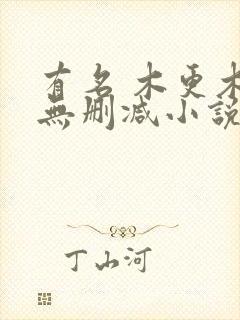 有名 木更木
無刪减小說
丁山河